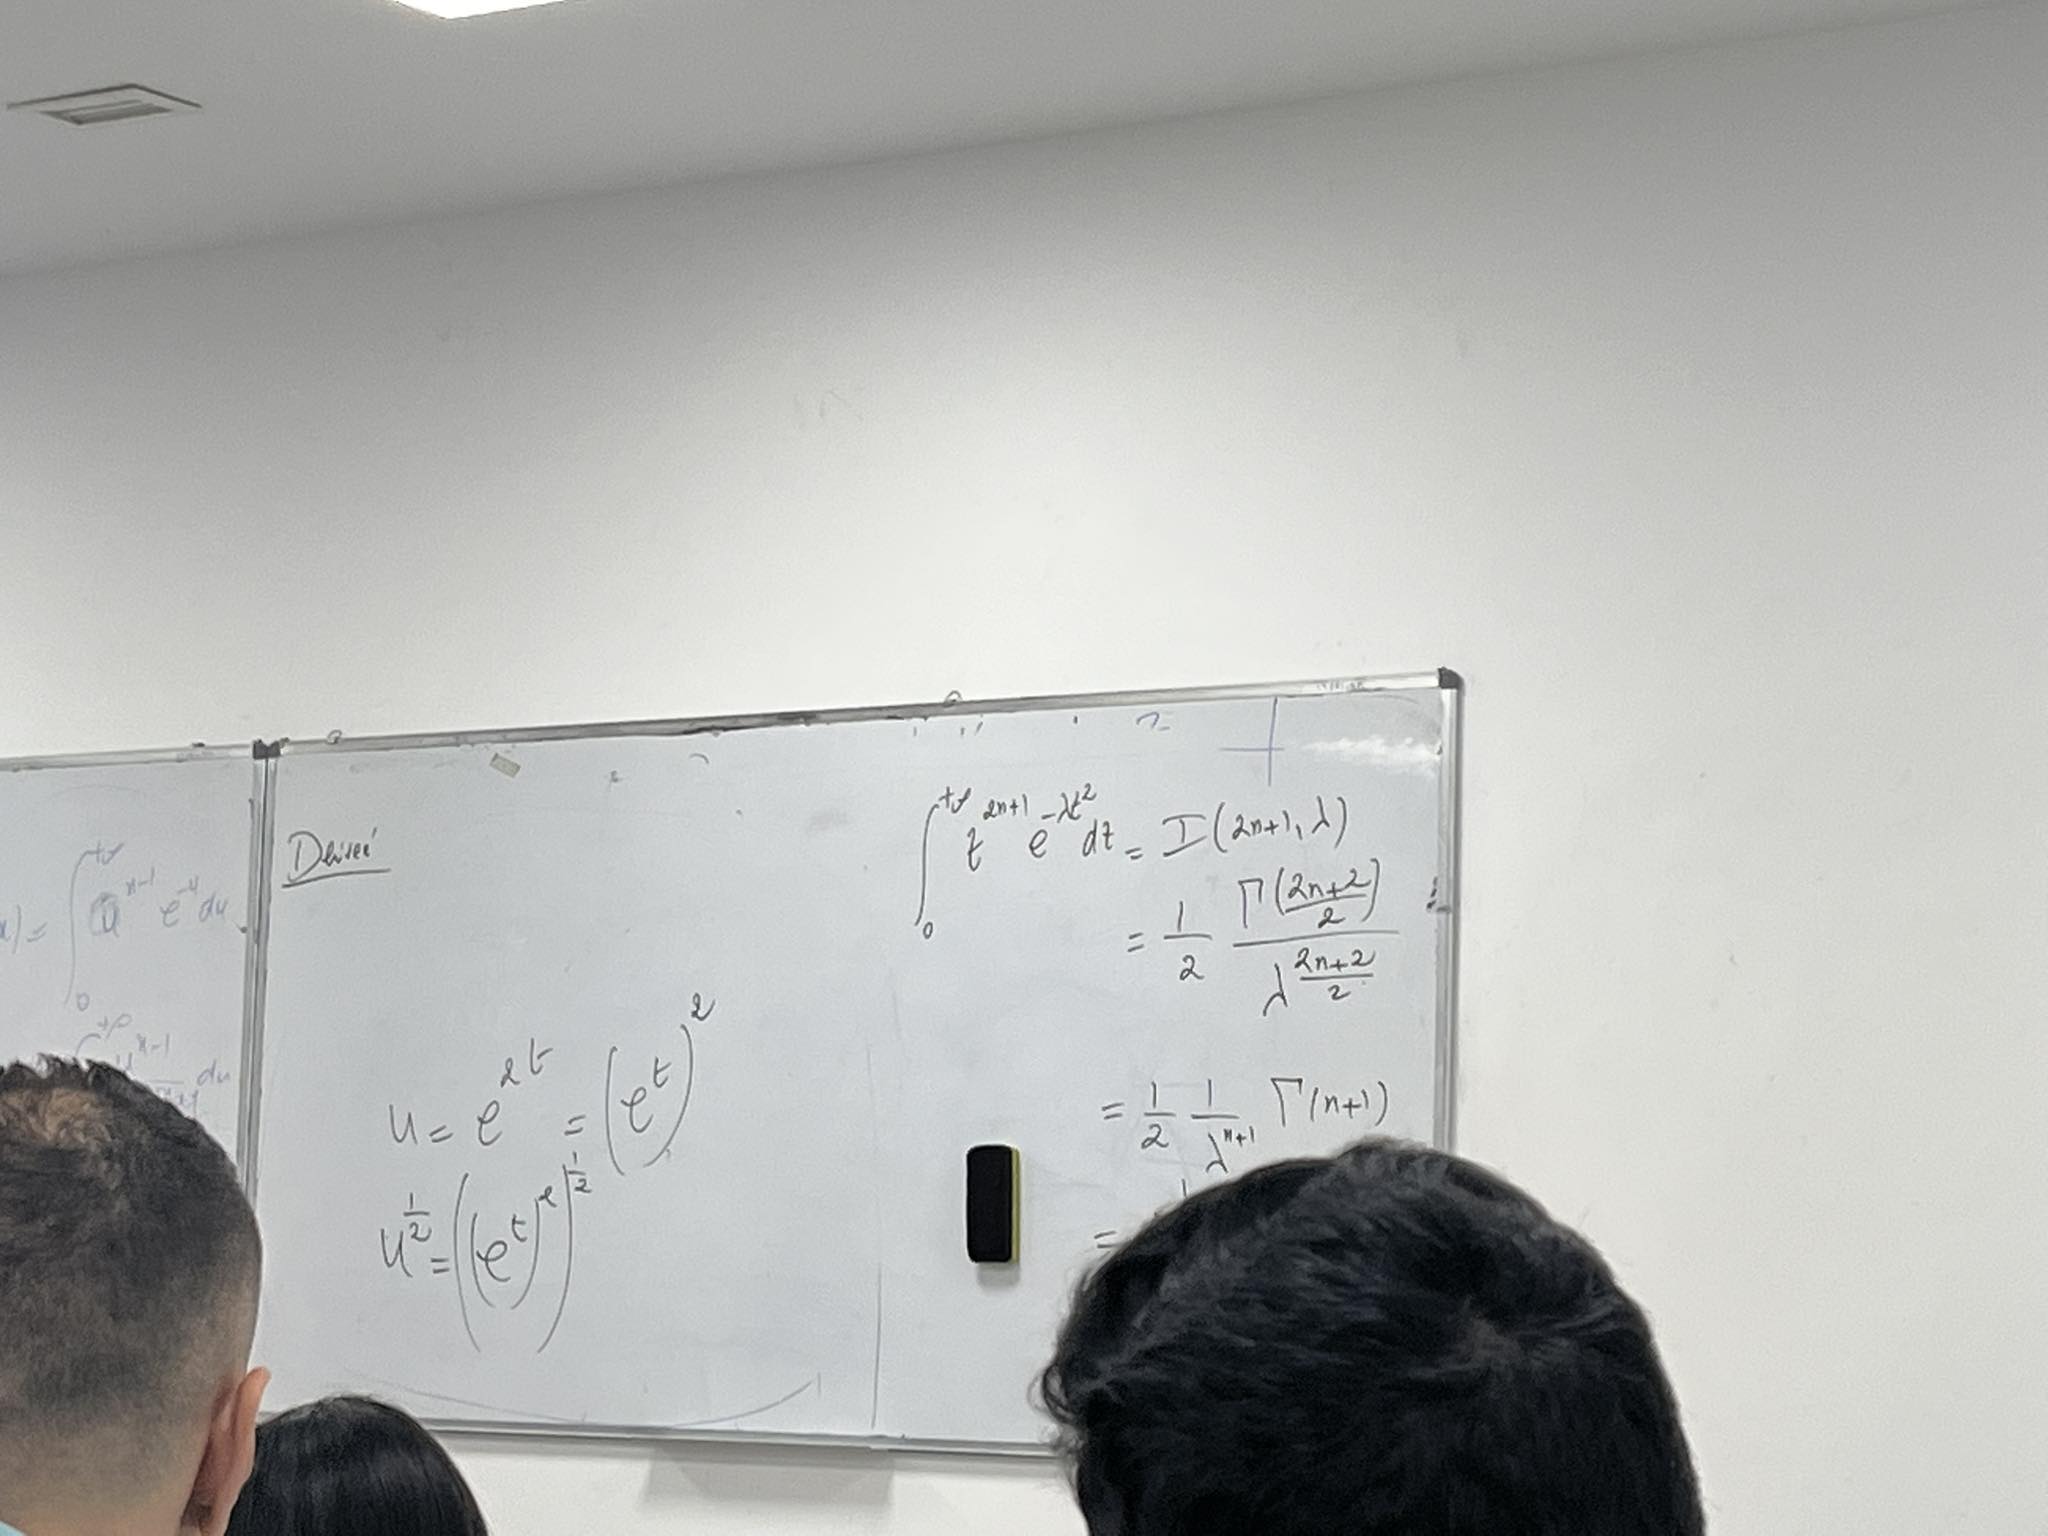 ∫₀^{+∞} u^{n-1} e^{-u} du
u^{n-1} du
u = e^{2t} = (e^t)^2
u^{1/2} = ((e^t)^2)^{1/2}
∫₀^{+∞} t^{2n+1} e^{-λt^2} dt = I(2n+1, λ)
= 1/2 Γ((2n+2)/2) / λ^{(2n+2)/2}
= 1/2 1/λ^{n+1} Γ(n+1)
=